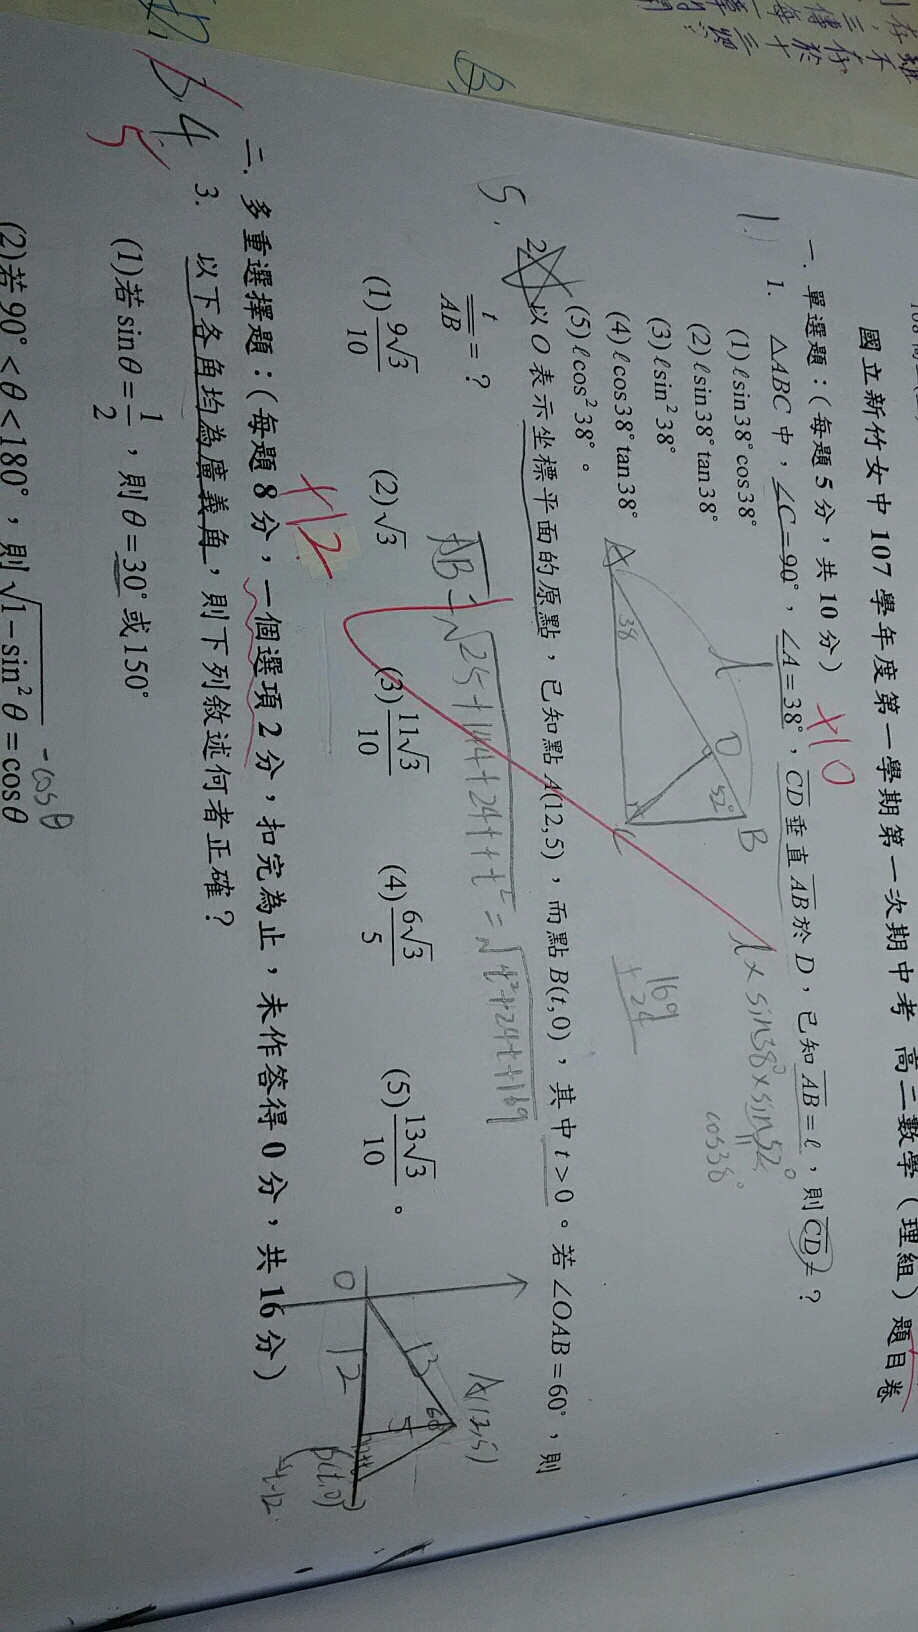 國立新竹女中 107 學年度第一學期第一次期中考 高二數學(理組)題目卷
一. 單選題:(每題 5 分,共 10 分)
×10
1.
1. △ABC 中,∠C=90°,∠A=38°,CD 垂直 AB 於 D,已知 AB=ℓ,則 CD=?
(1) ℓsin38°cos38°
(2) ℓsin38°tan38°
(3) ℓsin²38°
(4) ℓcos38°tan38°
(5) ℓcos²38°。
A 38 D 52° B C
ℓ × sin38° × sin52°
cos38°
169
+ 24
5.
2. 以 O 表示坐標平面的原點,已知點 A(12,5),而點 B(t,0),其中 t>0。若 ∠OAB=60°,則
t/AB=?
AB=√25+144+24t+t²=√t²+24t+169
(1) 9√3/10 (2) √3 (3) 11√3/10 (4) 6√3/5 (5) 13√3/10。
O 12 13 5 60 A(12,5) B(t,0) t-12
×12
二. 多重選擇題:(每題 8 分,一個選項 2 分,扣完為止,未作答得 0 分,共 16 分)
4
5
3. 以下各角均為廣義角,則下列敘述何者正確?
(1)若 sinθ=1/2,則 θ=30°或150°
(2)若 90°<θ<180°,則 √1-sin²θ=cosθ
-cosθ